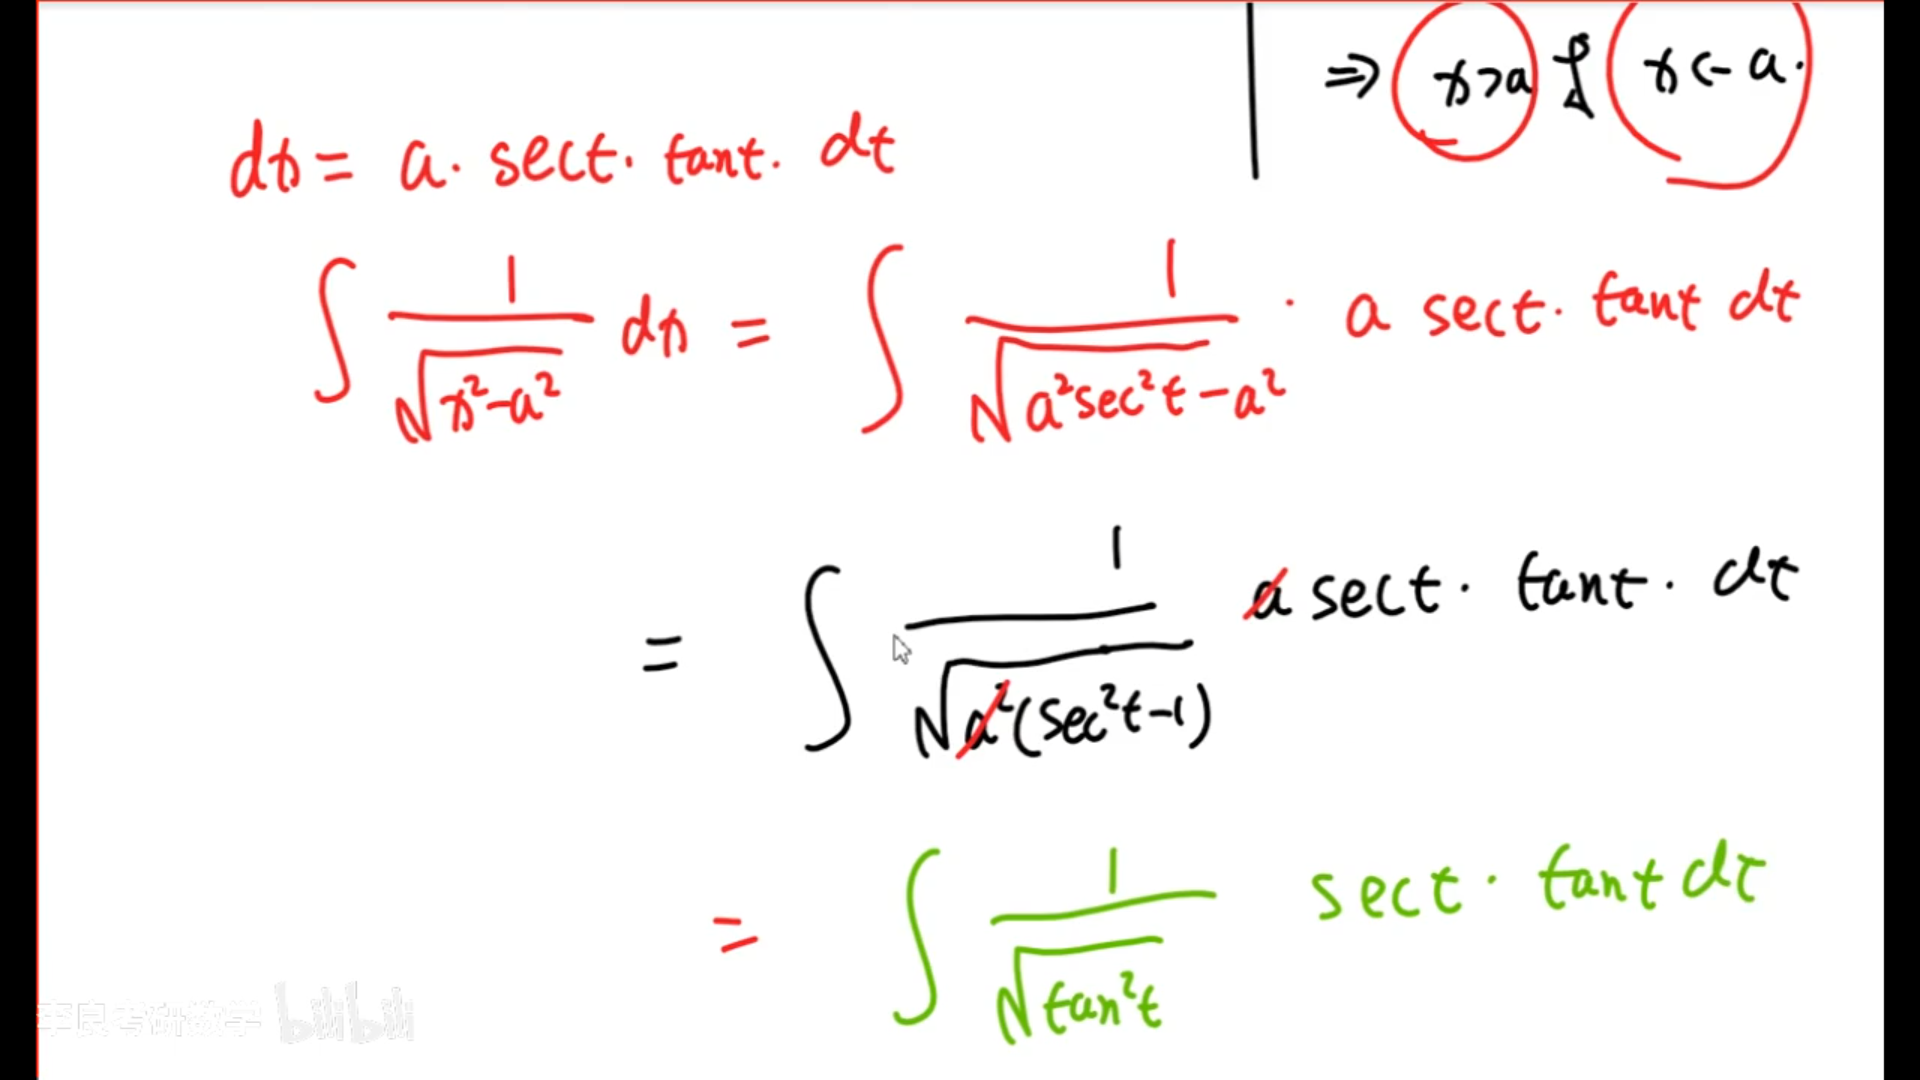 ⇒ x>a 或 x<-a.
dx = a. sect. tant. dt
∫ 1/√(x²-a²) dx = ∫ 1/√(a²sec²t-a²) · a sect. tant dt
= ∫ 1/√(a²(sec²t-1)) a sect. tant. dt
= ∫ 1/√(tan²t) sect. tant dt
李良考研数学 bilibili